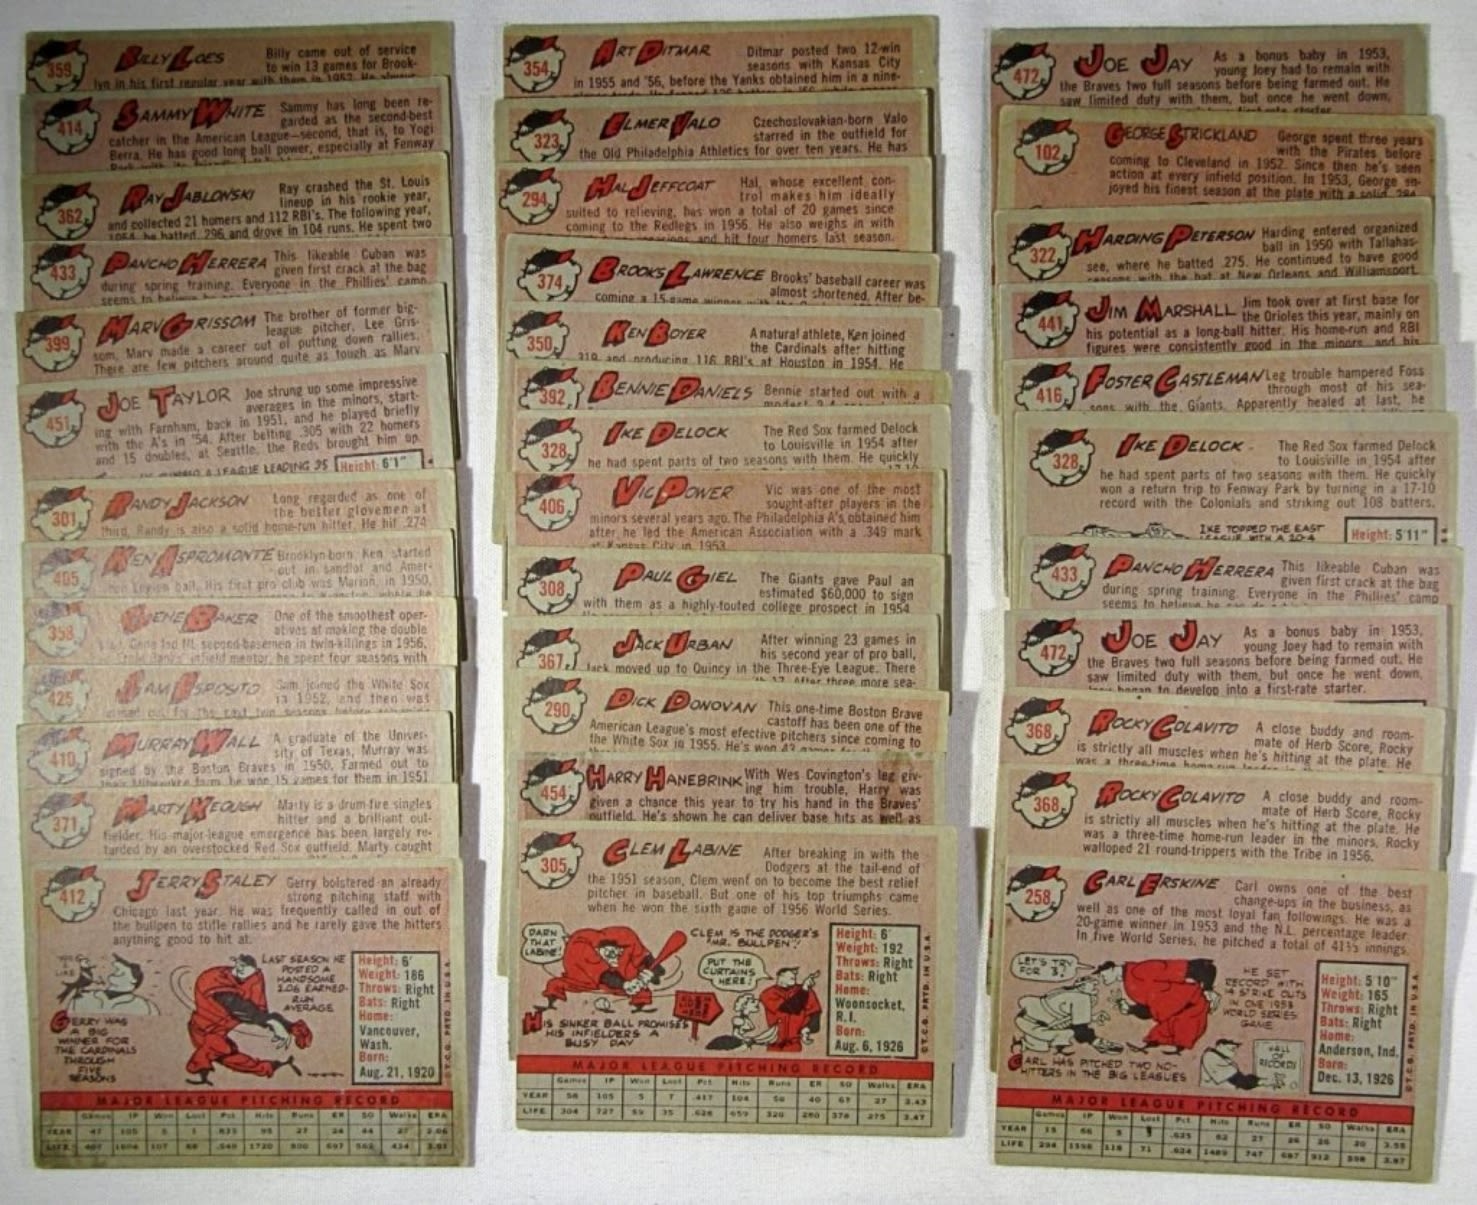 359
BILLY LOES
Billy came out of service
to win 13 games for Brook-
lyn in his first regular year with them in 1952. He always
414
SAMMY WHITE
Sammy has long been re-
garded as the second-best
catcher in the American League—second, that is, to Yogi
Berra. He has good long ball power, especially at Fenway
362
RAY JABLONSKI
Ray crashed the St. Louis
lineup in his rookie year,
and collected 21 homers and 112 RBI's. The following year,
1954, he batted .296 and drove in 104 runs. He spent two
433
PANCHO HERRERA
This likeable Cuban was
given first crack at the bag
during spring training. Everyone in the Phillies' camp
seems to believe he
399
MARV GRISSOM
The brother of former big-
league pitcher, Lee Gris-
som, Marv made a career out of putting down rallies.
There are few pitchers around quite as tough as Marv
451
JOE TAYLOR
Joe strung up some impressive
averages in the minors, start-
ing with Farnham, back in 1951, and he played briefly
with the A's in '54. After belting .305 with 22 homers
and 15 doubles, at Seattle, the Reds brought him up.
A LEAGUE LEADING 35
Height: 6'1"
301
RANDY JACKSON
Long regarded as one of
the better glovemen at
third, Randy is also a solid home-run hitter. He hit .274
405
KEN ASPROMONTE
Brooklyn born, Ken started
out in sandlot and Amer-
ican Legion ball. His first pro club was Marion, in 1950,
358
GENE BAKER
One of the smoothest oper-
atives at making the double
play, Gene led NL second-basemen in twin-killings in 1956.
infield mentor, he spent four seasons with
425
SAM ESPOSITO
Sam joined the White Sox
in 1952, and then was
410
MURRAY WALL
A graduate of the Univer-
sity of Texas, Murray was
signed by the Boston Braves in 1950. Farmed out to
he won 15 games for them in 1951
371
MARTY KEOUGH
Marty is a drum-fire singles
hitter and a brilliant out-
fielder. His major-league emergence has been largely re-
tarded by an overstocked Red Sox outfield. Marty caught
412
JERRY STALEY
Gerry bolstered an already
strong pitching staff with
Chicago last year. He was frequently called in out of
the bullpen to stifle rallies and he rarely gave the hitters
anything good to hit at.
LAST SEASON HE
POSTED A
HANDSOME
2.06 EARNED-
RUN
AVERAGE
GERRY WAS
A BIG
WINNER FOR
THE CARDINALS
THROUGH
FIVE
SEASONS
Height: 6'
Weight: 186
Throws: Right
Bats: Right
Home:
Vancouver,
Wash.
Born:
Aug. 21, 1920
©T.C.G. PRTD. IN U.S.A.
MAJOR LEAGUE PITCHING RECORD
Games IP Won Lost Pct. Hits Runs ER SO Walks ERA
YEAR 47 105 5 1 .833 95 27 24 44 27 2.06
LIFE
354
ART DITMAR
Ditmar posted two 12-win
seasons with Kansas City
in 1955 and '56, before the Yanks obtained him in a nine-
323
ELMER VALO
Czechoslovakian-born Valo
starred in the outfield for
the Old Philadelphia Athletics for over ten years. He has
294
HAL JEFFCOAT
Hal, whose excellent con-
trol makes him ideally
suited to relieving, has won a total of 20 games since
coming to the Redlegs in 1956. He also weighs in with
and hit four homers last season.
374
BROOKS LAWRENCE
Brooks' baseball career was
almost shortened. After be-
coming a 15-game winner with the
350
KEN BOYER
A natural athlete, Ken joined
the Cardinals after hitting
.319 and producing 116 RBI's at Houston in 1954. He
392
BENNIE DANIELS
Bennie started out with a
328
IKE DELOCK
The Red Sox farmed Delock
to Louisville in 1954 after
he had spent parts of two seasons with them. He quickly
406
VIC POWER
Vic was one of the most
sought-after players in the
minors several years ago. The Philadelphia A's obtained him
after he led the American Association with a .349 mark
at Kansas City in 1953.
308
PAUL GIEL
The Giants gave Paul an
estimated $60,000 to sign
with them as a highly-touted college prospect in 1954.
367
JACK URBAN
After winning 23 games in
his second year of pro ball,
Jack moved up to Quincy in the Three-Eye League. There
17. After three more sea-
290
DICK DONOVAN
This one-time Boston Brave
castoff has been one of the
American League's most efective pitchers since coming to
the White Sox in 1955. He's won 43 games
454
HARRY HANEBRINK
With Wes Covington's leg giv-
ing him trouble, Harry was
given a chance this year to try his hand in the Braves'
outfield. He's shown he can deliver base hits as well as
305
CLEM LABINE
After breaking in with the
Dodgers at the tail-end of
the 1951 season, Clem went on to become the best relief
pitcher in baseball. But one of his top triumphs came
when he won the sixth game of 1956 World Series.
DARN
THAT
LABINE!
CLEM IS THE DODGER'S
"MR. BULLPEN"!
PUT THE
CURTAINS
HERE!
HIS SINKER BALL PROMISES
HIS INFIELDERS A
BUSY DAY
Height: 6'
Weight: 192
Throws: Right
Bats: Right
Home:
Woonsocket,
R.I.
Born:
Aug. 6, 1926
©T.C.G. PRTD. IN U.S.A.
MAJOR LEAGUE PITCHING RECORD
Games IP Won Lost Pct. Hits Runs ER SO Walks ERA
YEAR 58 105 5 7 .417 104 50 40 67 27 3.43
LIFE 304 727 59 35 .628 659 320 280 378 275 3.47
472
JOE JAY
As a bonus baby in 1953,
young Joey had to remain with
the Braves two full seasons before being farmed out. He
saw limited duty with them, but once he went down,
102
GEORGE STRICKLAND
George spent three years
with the Pirates before
coming to Cleveland in 1952. Since then he's seen
action at every infield position. In 1953, George en-
joyed his finest season at the plate with a solid .284
322
HARDING PETERSON
Harding entered organized
ball in 1950 with Tallahas-
see, where he batted .275. He continued to have good
seasons with the bat at New Orleans and Williamsport
441
JIM MARSHALL
Jim took over at first base for
the Orioles this year, mainly on
his potential as a long-ball hitter. His home-run and RBI
figures were consistently good in the minors, and his
416
FOSTER CASTLEMAN
Leg trouble hampered Foss
through most of his sea-
sons with the Giants. Apparently healed at last, he
328
IKE DELOCK
The Red Sox farmed Delock
to Louisville in 1954 after
he had spent parts of two seasons with them. He quickly
won a return trip to Fenway Park by turning in a 17-10
record with the Colonials and striking out 108 batters.
IKE TOPPED THE EAST
LEAGUE WITH A 20-4
Height: 5'11"
433
PANCHO HERRERA
This likeable Cuban was
given first crack at the bag
during spring training. Everyone in the Phillies' camp
seems to believe he can do
472
JOE JAY
As a bonus baby in 1953,
young Joey had to remain with
the Braves two full seasons before being farmed out. He
saw limited duty with them, but once he went down,
Joey began to develop into a first-rate starter.
368
ROCKY COLAVITO
A close buddy and room-
mate of Herb Score, Rocky
is strictly all muscles when he's hitting at the plate. He
was a three-time home-run leader in the
368
ROCKY COLAVITO
A close buddy and room-
mate of Herb Score, Rocky
is strictly all muscles when he's hitting at the plate. He
was a three-time home-run leader in the minors. Rocky
walloped 21 round-trippers with the Tribe in 1956.
258
CARL ERSKINE
Carl owns one of the best
change-ups in the business, as
well as one of the most loyal fan followings. He was a
20-game winner in 1953 and the N.L. percentage leader.
In five World Series, he pitched a total of 41⅓ innings.
LET'S TRY
FOR 3!
HE SET
RECORD WITH
14 STRIKE OUTS
IN ONE 1953
WORLD SERIES
GAME
HALL
OF
RECORDS
CARL HAS PITCHED TWO NO-
HITTERS IN THE BIG LEAGUES
Height: 5'10"
Weight: 165
Throws: Right
Bats: Right
Home:
Anderson, Ind.
Born:
Dec. 13, 1926
©T.C.G. PRTD. IN U.S.A.
MAJOR LEAGUE PITCHING RECORD
Games IP Won Lost Pct. Hits Runs ER SO Walks ERA
YEAR 15 66 5 3 .625 62 27 26 26 20 3.55
LIFE 294 1598 118 71 .624 1489 747 687 912 598 3.87